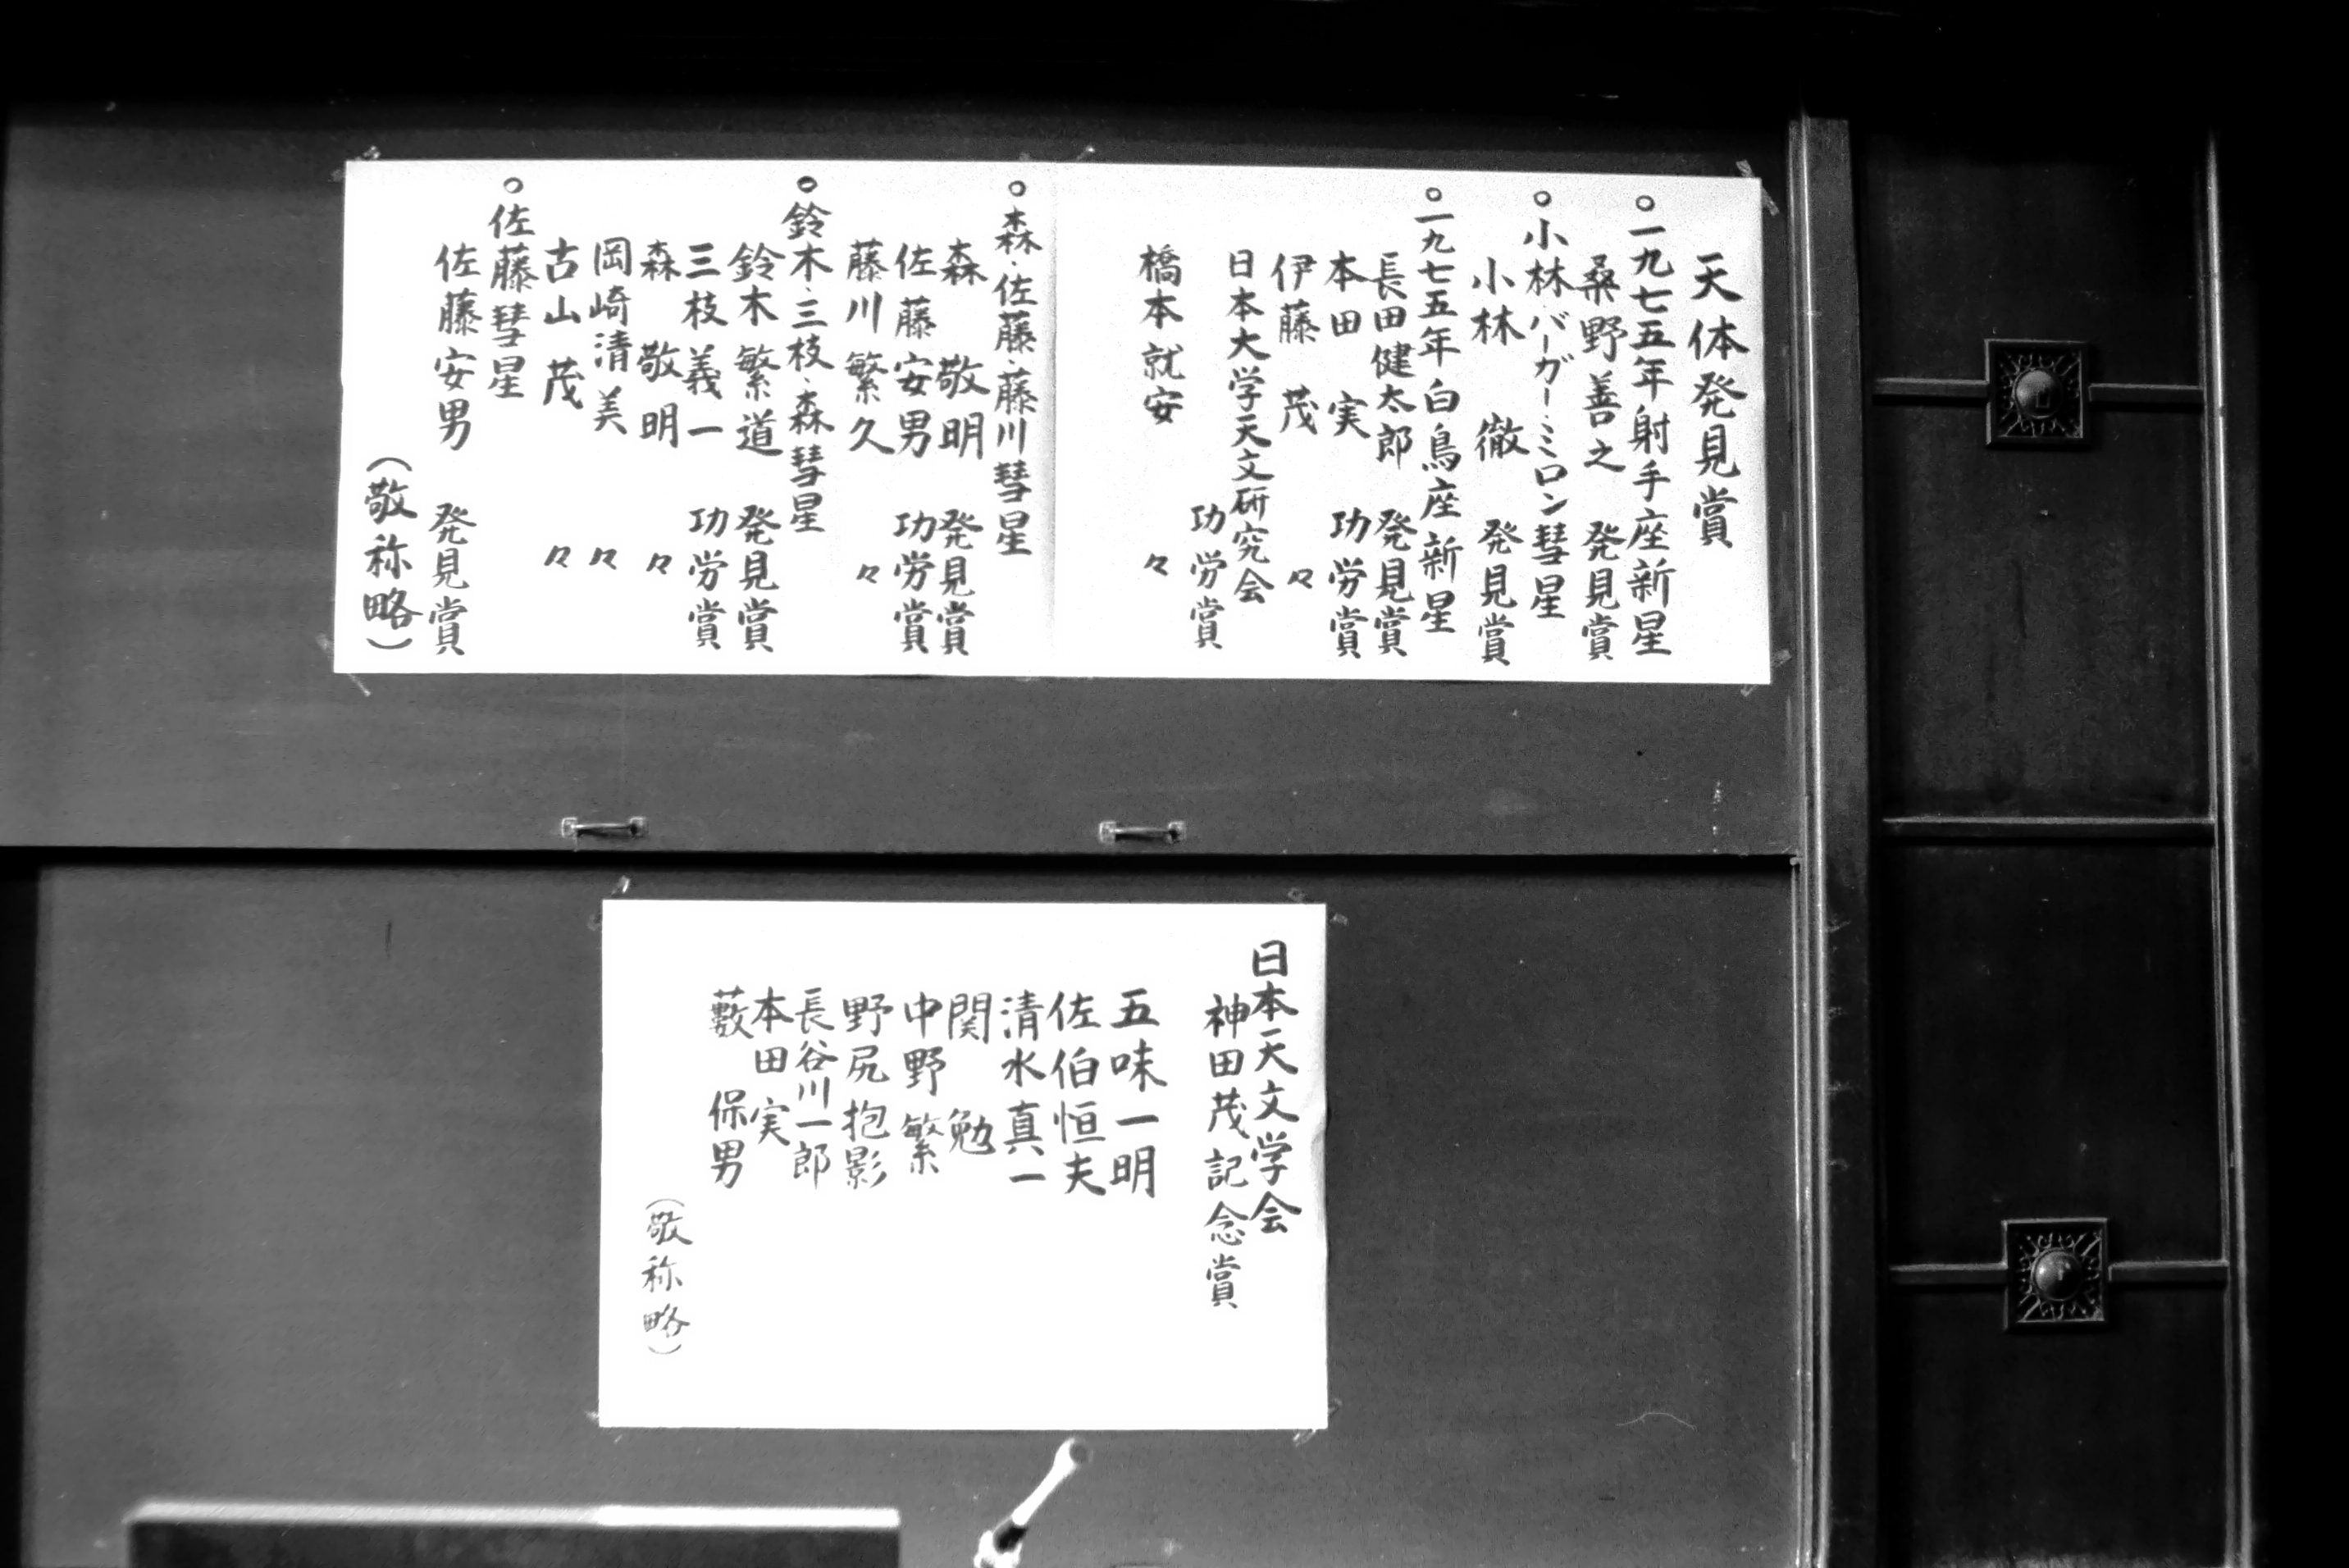 天体発見賞
○一九七五年射手座新星
桑野善之 発見賞
○小林・バーガー・ミロン彗星
小林 徹 発見賞
○一九七五年白鳥座新星
長田健太郎 発見賞
本田 実 功労賞
伊藤 茂 々
日本大学天文研究会
功労賞
橋本就安 々
○森・佐藤・藤川彗星
森 敬明 発見賞
佐藤安男 功労賞
藤川繁久 々
○鈴木・三枝・森彗星
鈴木繁道 発見賞
三枝義一 功労賞
森 敬明 々
岡崎清美 々
古山 茂 々
○佐藤彗星
佐藤安男 発見賞
(敬称略)
日本天文学会
神田茂記念賞
五味一明
佐伯恒夫
清水真一
関 勉
中野 繁
野尻抱影
長谷川一郎
本田 実
藪 保男
(敬称略)